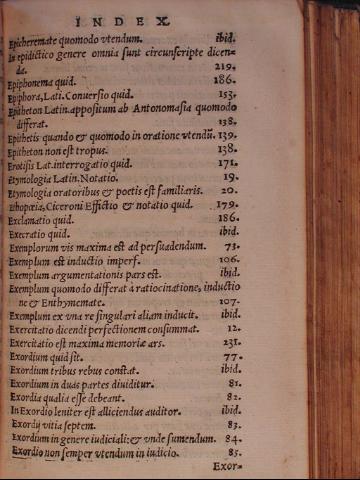 INDEX.
Epicheremate quomodo vtendum. ibid.
In epidictico genere omnia sunt circunscripte dicen=
da. 219.
Epiphonema quid. 186.
Epiphora, Lati. Conuersio quid. 153.
Epitheton Latin. appositum ab Antonomasia quomodo
differat. 138.
Epithetis quando & quomodo in oratione vtendū. 139.
Epitheton non est tropus. 138.
Erotisis Lat. interrogatio quid. 171.
Etymologia Latin. Notatio. 19.
Etymologia oratoribus & poetis est familiaris. 20.
Ethopœia, Ciceroni Effictio & notatio quid. 179.
Exclamatio quid. 186.
Execratio quid. ibid.
Exemplorum vis maxima est ad persuadendum. 73.
Exemplum est inductio imperf. 106.
Exemplum argumentationis pars est. ibid.
Exemplum quomodo differat à ratiocinatione, inductio
ne & Enthymemate. 107.
Exemplum ex vna re singulari aliam inducit. ibid.
Exercitatio dicendi perfectionem consummat. 12.
Exercitatio est maxima memoriæ ars. 231.
Exordium quid sit. 77.
Exordium tribus rebus constat. ibid.
Exordium in duas partes diuiditur. 81.
Exordia qualia esse debeant. 82.
In Exordio leniter est alliciendus auditor. ibid.
Exordij vitia septem. 83.
Exordium in genere iudiciali: & vnde sumendum. 84.
Exordio non semper vtendum in iudicio. 85.
Exor=